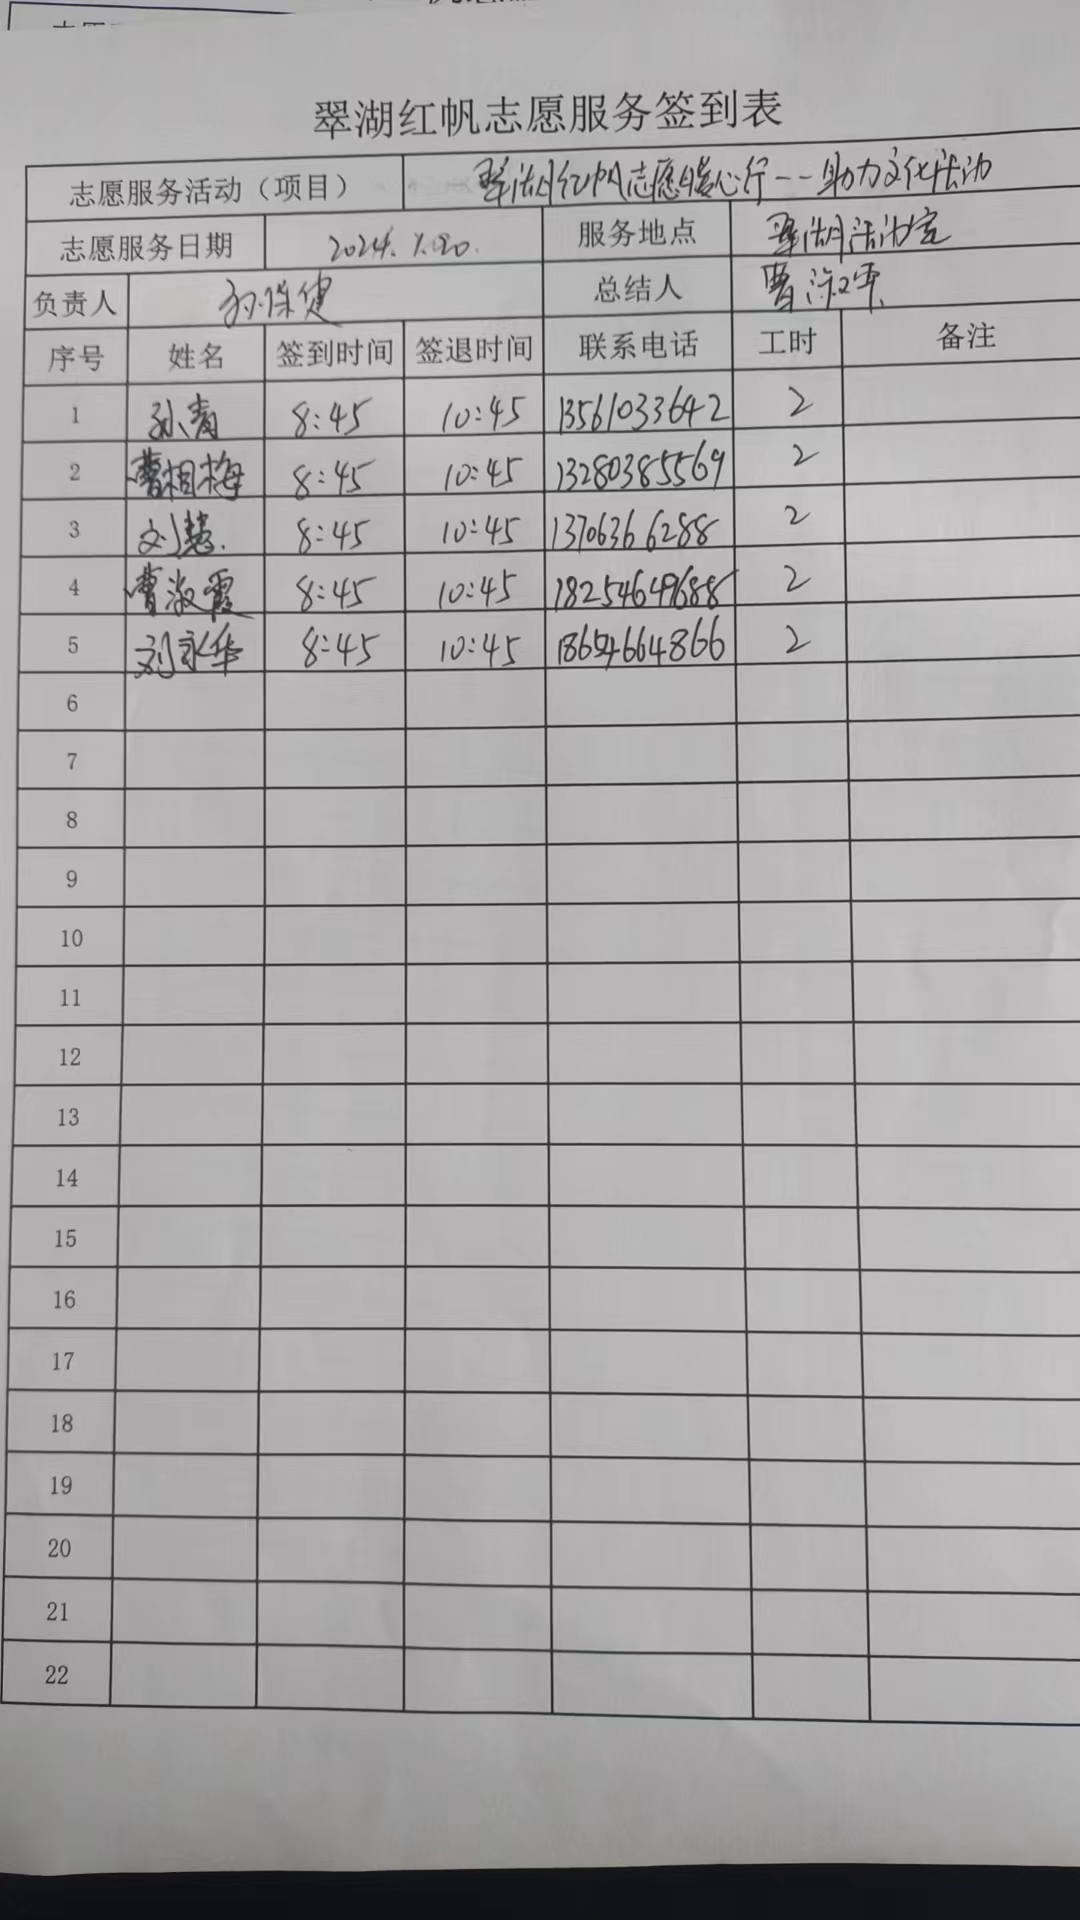 翠湖红帆志愿服务签到表
志愿服务活动（项目） 翠湖红帆志愿暖心行--助力文化活动
志愿服务日期 2024. 服务地点 翠湖活动室
负责人 孙保健 总结人 曹淑
序号 姓名 签到时间 签退时间 联系电话 工时 备注
1 孙青 8:45 10:45 13561033642 2
2 曹相梅 8:45 10:45 13280385569 2
3 刘慧 8:45 10:45 13706366288 2
4 曹淑霞 8:45 10:45 18254649688 2
5 刘永华 8:45 10:45 18654664866 2
6
7
8
9
10
11
12
13
14
15
16
17
18
19
20
21
22